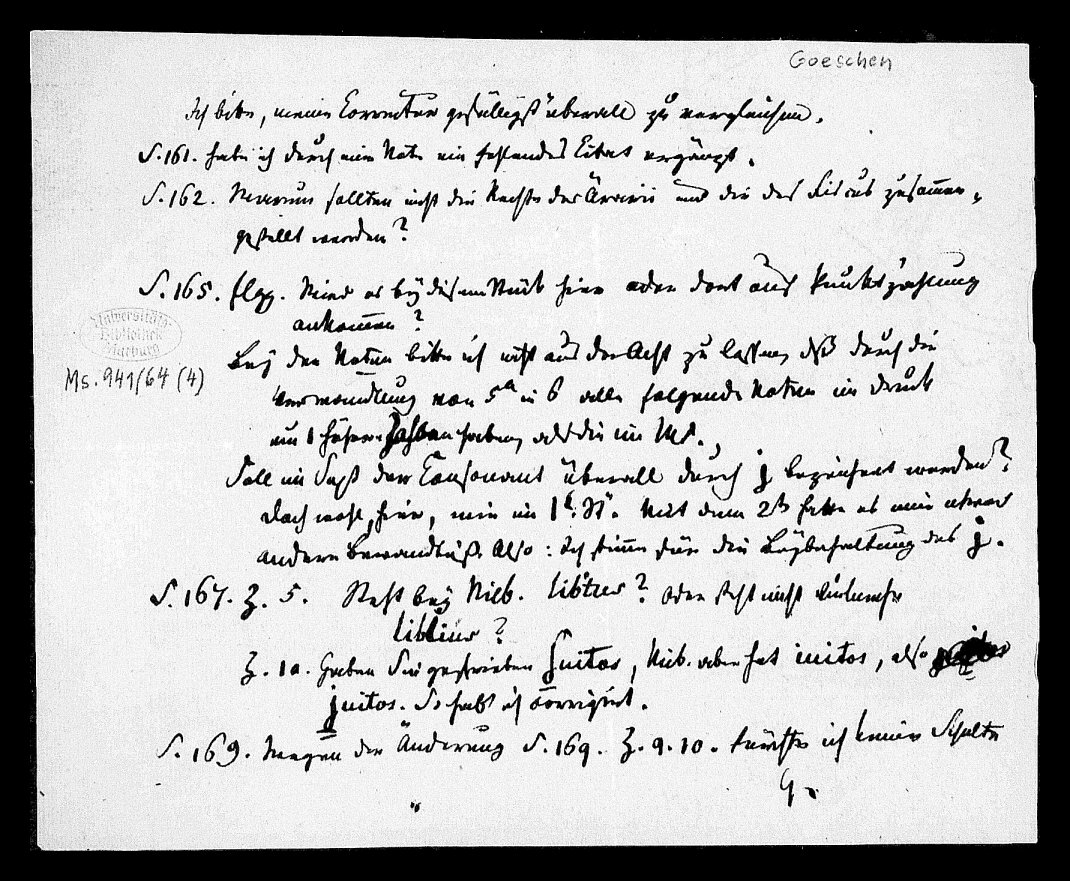 Goeschen
Ich bitte, meine Correctur gefälligst überall zu vergleichen.
S. 161. habe ich durch eine Note ein fehlendes Citat ergänzt.
S. 162. Warum sollten nicht die Rechte des Ärarii und die des Fiscus zusammen-
gestellt werden?
S. 165. flgg. Wird es bey diesem Stück hier oder dort auf Punktzahlung
ankom̅en?
Universitäts-
Bibliothek
Marburg
Bey den Noten bitte ich nicht aus der Acht zu lassen, dß durch die
Ms. 941/64 (4)
Verwandlung von 5a in 6 alle folgende Noten im Druck
eine 1 höhere Zahl haben, als die im MS.
Soll im Satz der Consonant überall durch j bezeichnet werden?
Doch wohl hier, wie im 1t. St. Mit dem 2t hatte es eine etwas
andere Bewandtniß. Also: Ich stim̅e für die Beybehaltung des j.
S. 167. Z. 5. Steht bey Nieb. libtius? Oder steht nicht vielmehr
libtius?
Z. 10. Haben Sie geschrieben Juitos, Nieb. aber hat iuitos, also
juitos. So habe ich corrigirt.
S. 169. Wegen der Änderung S. 169. Z. 9. 10. fürchte ich keine Schelte
G.